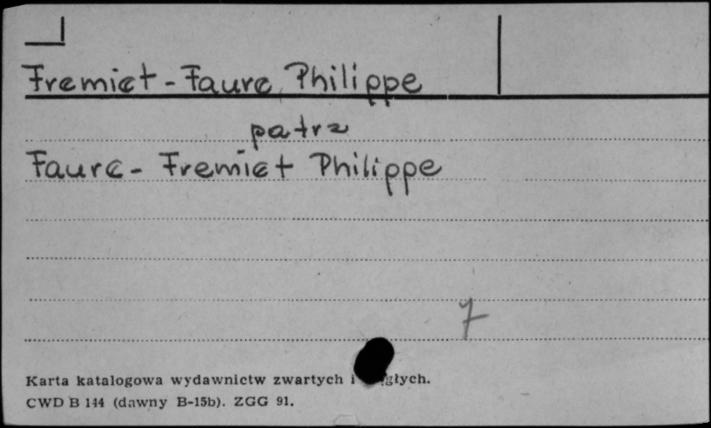 Fremiet - Faure Philippe
patrz
Faure - Fremiet Philippe
7
Karta katalogowa wydawnictw zwartych i
CWD B 144 (dawny B-15b). ZGG 91.